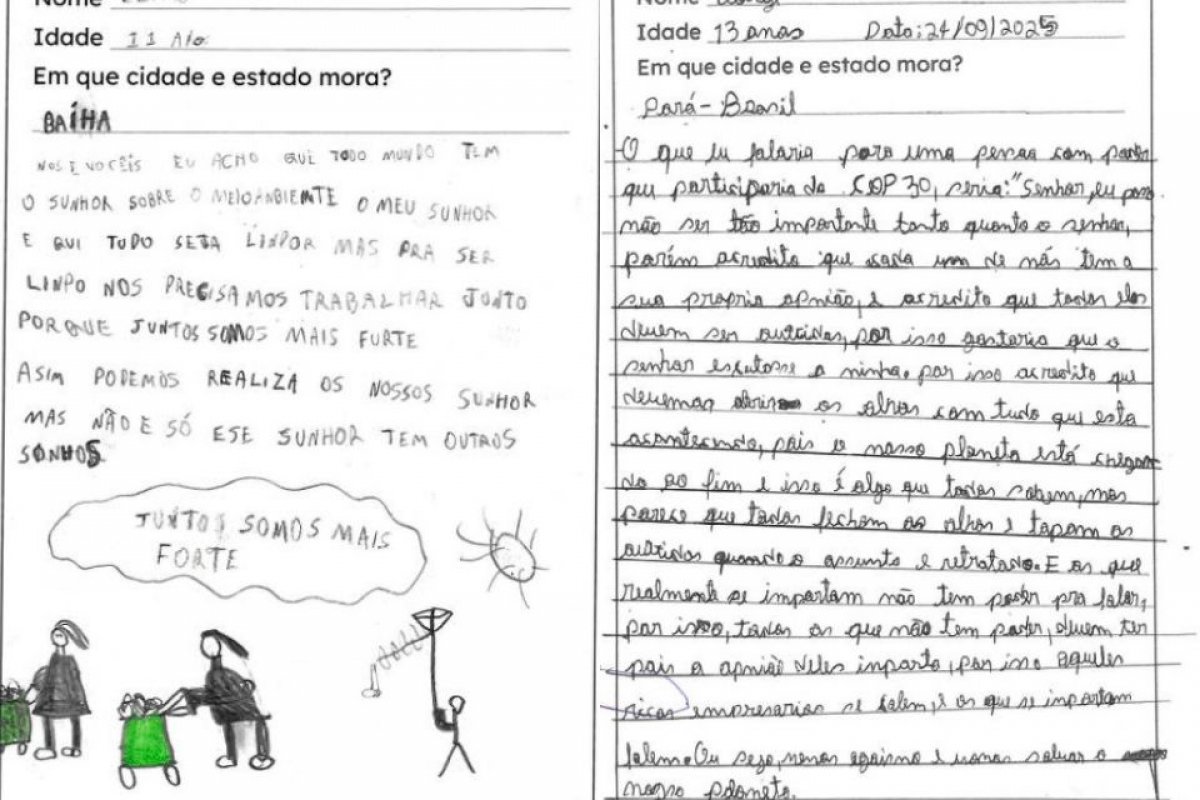 Nome
Idade 11 Ano
Em que cidade e estado mora?
BAÍHA
NOS E VOCEIS EU ACHO QUE TODO MUNDO TEM
O SUNHOR SOBRE O MEIOANBIEMTE O MEU SUNHOR
E QUI TUDO SEJA LINPOR MAS PRA SER
LINPO NOS PRECISAMOS TRABALHAR JUNTO
PORQUE JUNTOS SOMOS MAIS FORTE
ASIM PODEMOS REALIZA OS NOSSOS SUNHOR
MAS NÃO E SÓ ESE SUNHOR TEM OUTROS
SONHOS
JUNTOS SOMOS MAIS
FORTE
Nome
Idade 13 anos Data: 24/09/2025
Em que cidade e estado mora?
Pará - Brasil
O que eu falaria para uma pessoa com poder
que participaria da COP 30, seria: "Senhor, eu posso
não ser tão importante tanto quanto o senhor,
porém acredito que cada um de nós tem a
sua propria opnião, e acredito que todas elas
devem ser ouvidas, por isso gostaria que o
senhor escutasse a minha. por isso acredito que
devemos abrir os olhos com tudo que esta
acontecendo, pois o nosso planeta está chegan
do ao fim e isso é algo que todos sabem, mas
parece que todos fecham os olhos e tapam os
ouvidos quando o assunto e retratado. E os que
realmente se importam não tem poder pra falar,
por isso, todos os que não tem poder, devem ter
pois a opnião deles inporta, por isso aqueles
ricos empresarios se calem, e os que se importam
falem. Ou seja, menos egoismo e vamos salvar o
nosso planeta.